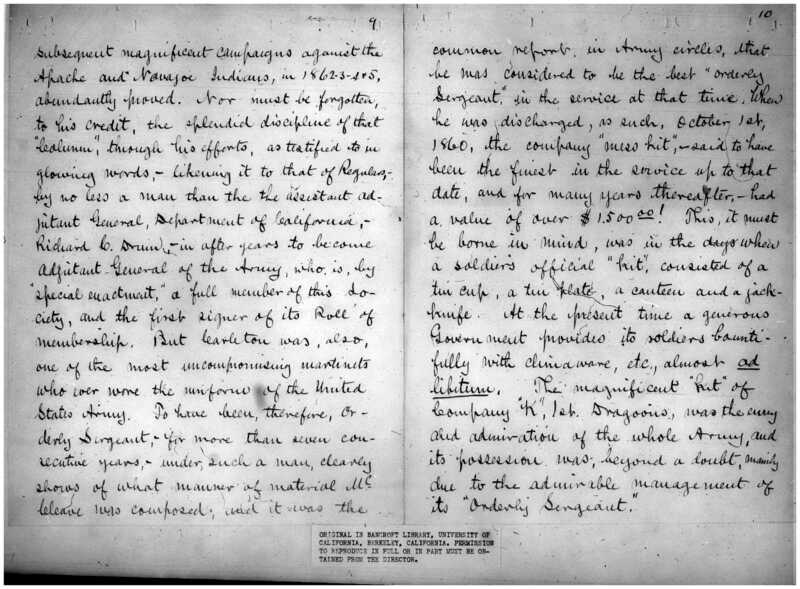 9
subsequent magnificent campaigns against the
Apache and Navajoe Indians, in 1862-3-4&5,
abundantly proved. Nor must be forgotten,
to his credit, the splendid discipline of that
"Column", through his efforts, as testified to in
glowing words,- likening it to that of Regulars,-
by no less a man than the the assistant ad-
jutant General, Department of California,-
Richard C. Drum,- in after years to become
Adjutant-General of the Army, who, is, by
"special enactment," a full member of this So-
ciety, and the first signer of its Roll of
membership. But Carleton was, also,
one of the most uncompromising martinets
who ever wore the uniform of the United
States Army. To have been, therefore, Or-
derly Sergeant,- for more than seven con-
secutive years,- under such a man, clearly
shows of what manner of material Mc
Cleave was composed; and it was the
10
common report, in Army circles, that
he was considered to be the best "orderly
Sergeant," in the service at that time. When
he was discharged, as such, October 1st,
1860, the company "mess kit",- said to have
been the finest in the service up to that
date, and for many years thereafter,- had
a value of over $1.500.00! This, it must
be borne in mind, was in the days when
a soldier's official "kit", consisted of a
tin cup, a tin plate, a canteen and a jack-
knife. At the present time a generous
Government provides its soldiers bounti-
fully with chinaware, etc., almost ad
libitum. The magnificent "kit" of
Company "K", 1st. Dragoons, was the envy
and admiration of the whole Army, and
its possession was, beyond a doubt, mainly
due to the admirable management of
its "Orderly Sergeant."
ORIGINAL IN BANCROFT LIBRARY, UNIVERSITY OF
CALIFORNIA, BERKELEY, CALIFORNIA. PERMISSION
TO REPRODUCE IN FULL OR IN PART MUST BE OB-
TAINED FROM THE DIRECTOR.